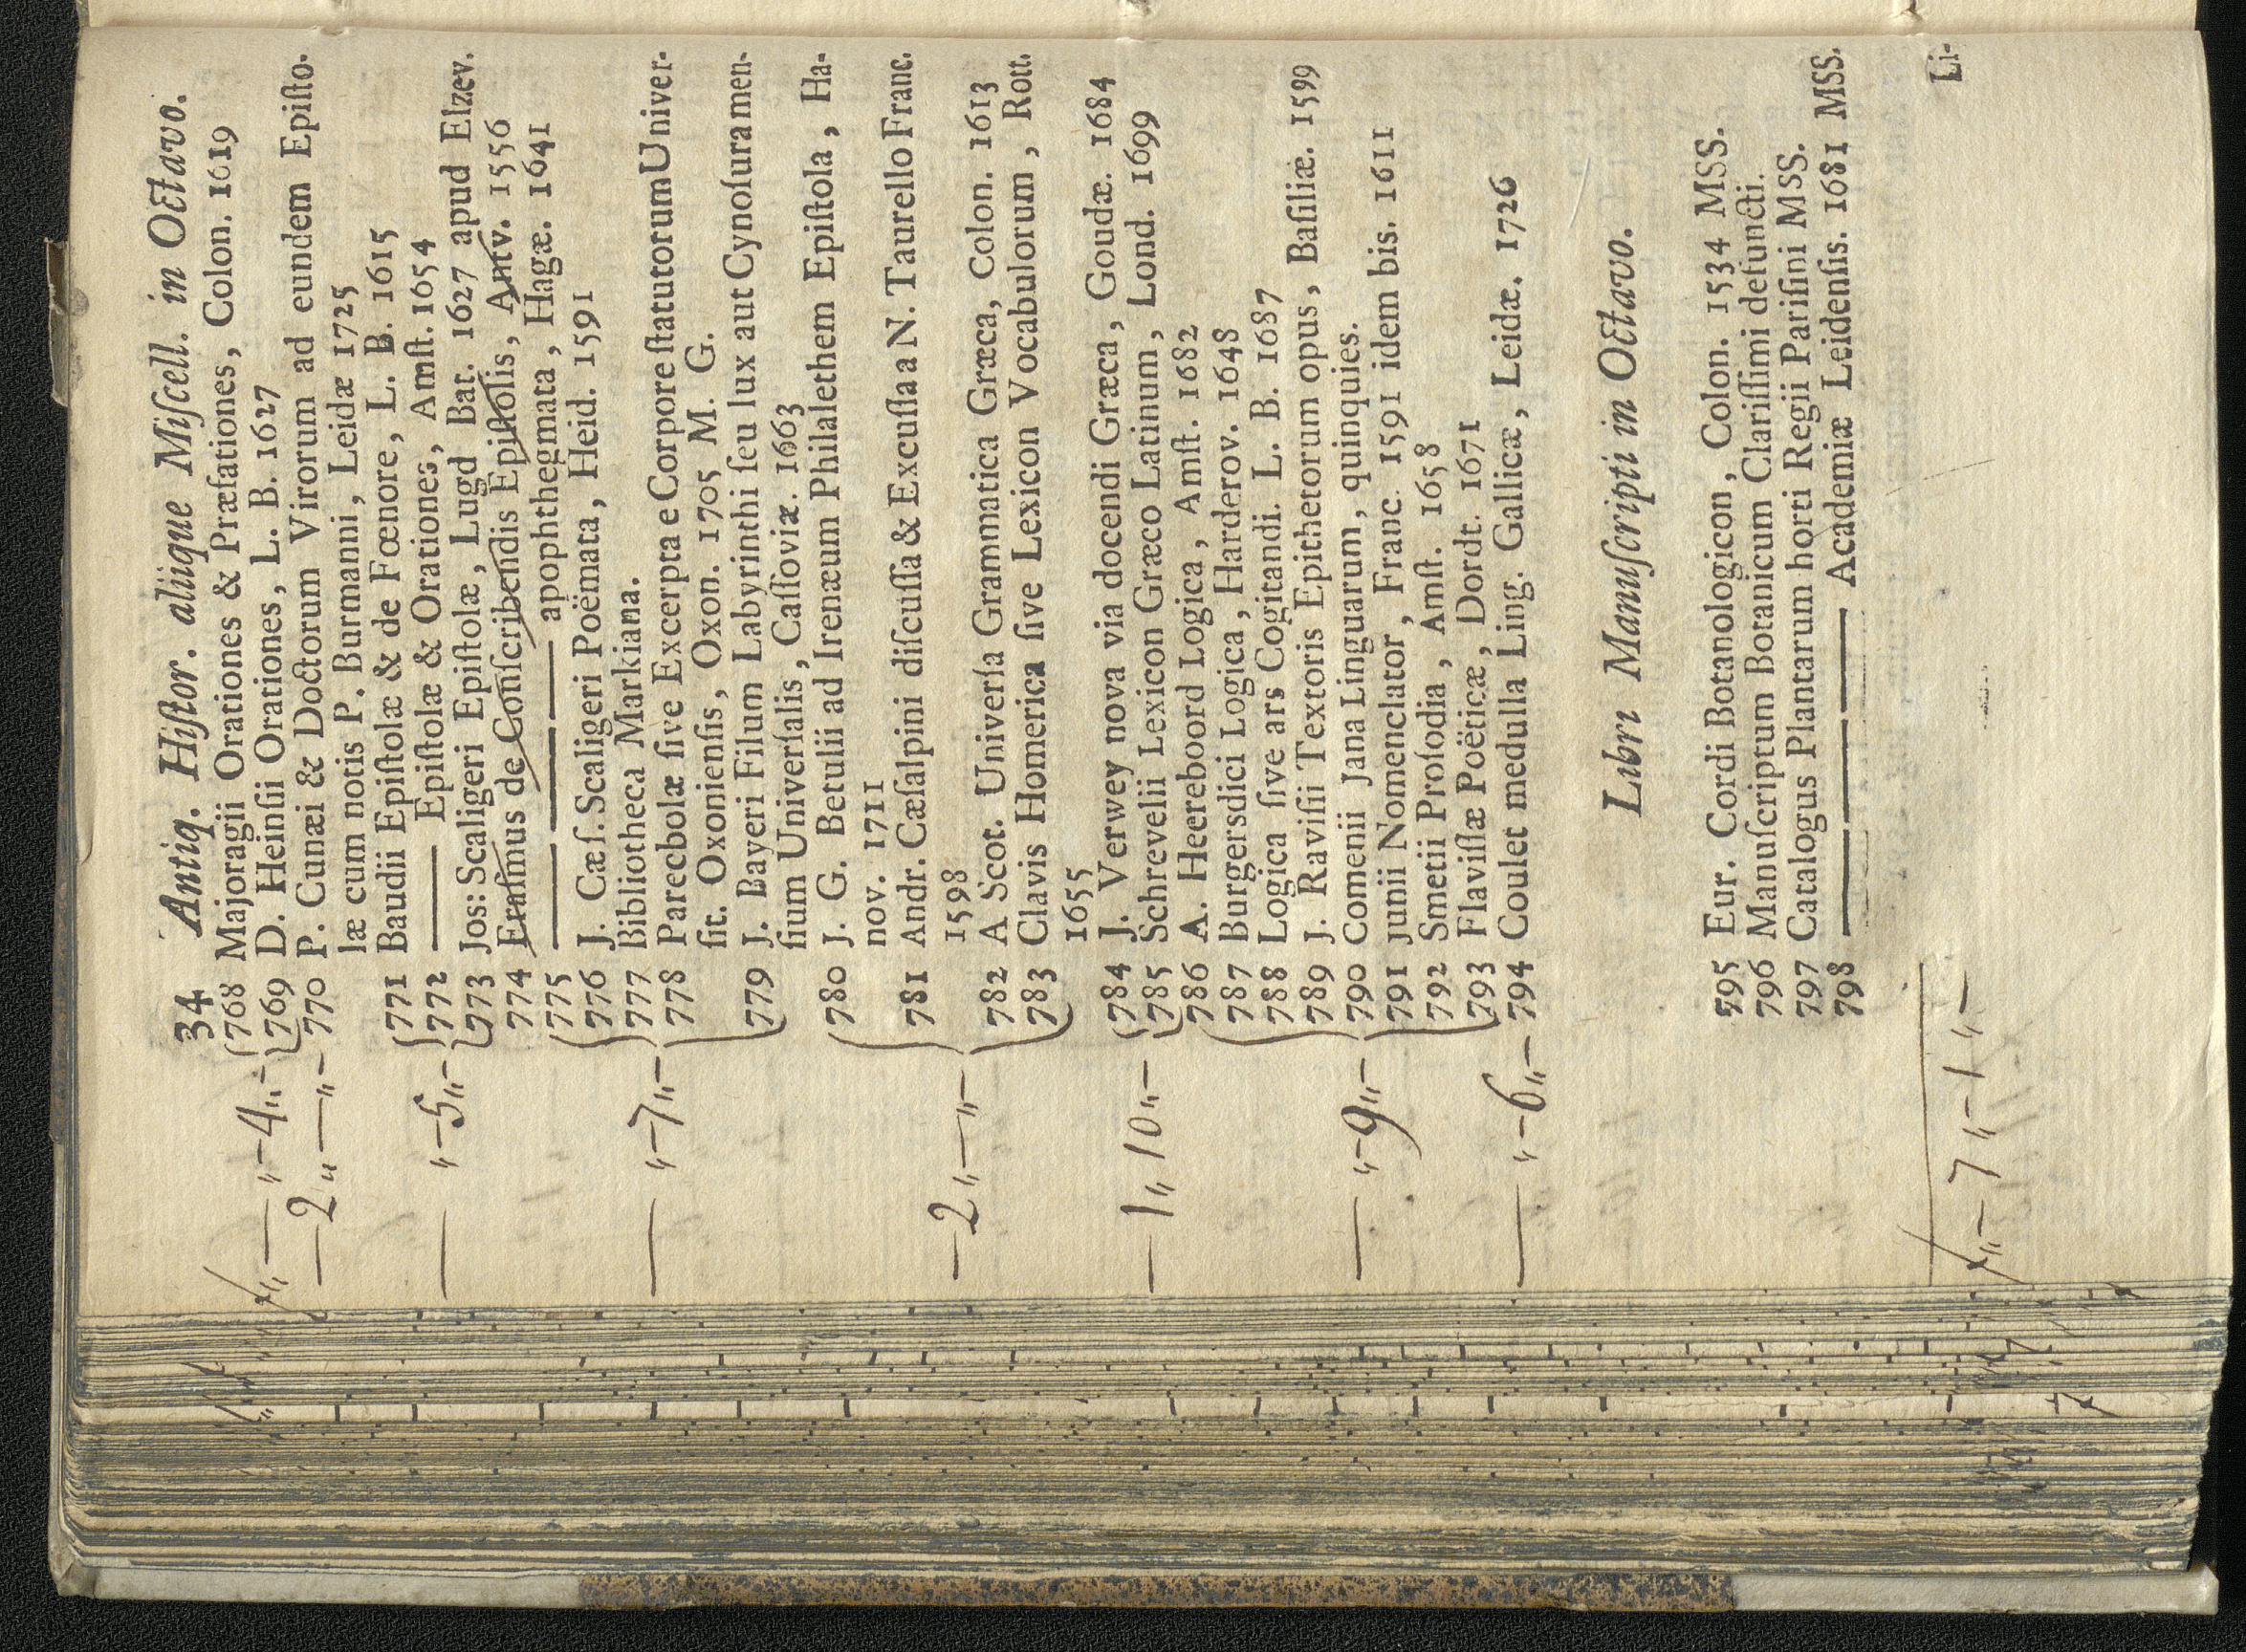 34 Antiq. Hiſtor. aliique Miſcell. in Octavo.
ƒ„—„—4„- 768 Majoragii Orationes & Præfationes, Colon. 1619
769 D. Heinſii Orationes, L. B. 1627
—2„—„- 770 P. Cunæi & Doctorum Virorum ad eundem Epiſto-
læ cum notis P. Burmanni, Leidæ 1725
771 Baudii Epiſtolæ & de Fœnore, L. B. 1615
— „-5„- 772 —— Epiſtolæ & Orationes, Amſt. 1654
773 Jos: Scaligeri Epiſtolæ, Lugd Bat. 1627 apud Elzev.
774 Eraſmus de Conſcribendis Epiſtolis, Antv. 1556
775 —— —— —— apophthegmata, Hagæ. 1641
776 J. Cæſ. Scaligeri Poëmata, Heid. 1591
— „-7„- 777 Bibliotheca Markiana.
778 Parecbolæ ſive Excerpta e Corpore ſtatutorum Univer-
ſit. Oxonienſis, Oxon. 1705 M. G.
779 J. Bayeri Filum Labyrinthi ſeu lux aut Cynoſura men-
ſium Univerſalis, Caſſoviæ. 1663
780 J. G. Betulii ad Irenæum Philalethem Epiſtola, Ha-
nov. 1711
781 Andr. Cæſalpini diſcuſſa & Excuſſa a N. Taurello Franc.
—2„—„- 1598
782 A Scot. Univerſa Grammatica Græca, Colon. 1613
783 Clavis Homerica ſive Lexicon Vocabulorum, Rott.
1655
784 J. Verwey nova via docendi Græca, Goudæ. 1684
—1„10„- 785 Schrevelii Lexicon Græco Latinum, Lond. 1699
786 A. Heereboord Logica, Amſt. 1682
787 Burgersdici Logica, Harderov. 1648
788 Logica ſive ars Cogitandi. L. B. 1687
789 J. Raviſii Textoris Epithetorum opus, Baſiliæ. 1599
— „-9„- 790 Comenii Jana Linguarum, quinquies.
791 Junii Nomenclator, Franc. 1591 idem bis. 1611
792 Smetii Proſodia, Amſt. 1658
793 Flaviſſæ Poëticæ, Dordt. 1671
— „-6„- 794 Coulet medulla Ling. Gallicæ, Leidæ. 1726
Libri Manuſcripti in Octavo.
795 Eur. Cordi Botanologicon, Colon. 1534 MSS.
796 Manuſcriptum Botanicum Clariſſimi defuncti.
797 Catalogus Plantarum horti Regii Pariſini MSS.
798 —— —— —— Academiæ Leidenſis. 1681 MSS.
Li-
ƒ„-7„-1„-